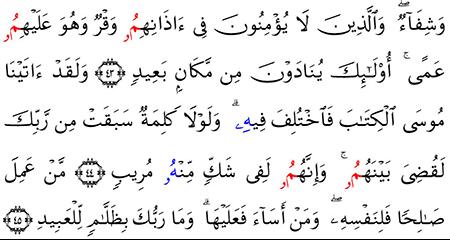 وَشِفَآءٌۖ وَالَّذِينَ لَا يُؤْمِنُونَ فِى ءَاذَانِهِمُۥ وَقْرٌ وَهُوَ عَلَيْهِمُۥ
عَمًىۚ أُوْلَٰٓئِكَ يُنَادَوْنَ مِن مَّكَانِۭ بَعِيدٍ ٤٣ وَلَقَدْ ءَاتَيْنَا
مُوسَى اَ۬لْكِتَٰبَ فَاخْتُلِفَ فِيهِۦۗ وَلَوْلَا كَلِمَةٌ سَبَقَتْ مِن رَّبِّكَ
لَقُضِىَ بَيْنَهُمُۥۚ وَإِنَّهُمُۥ لَفِى شَكٍّ مِّنْهُۥ مُرِيبٍ ٤٤ مَّنْ عَمِلَ
صَٰلِحًا فَلِنَفْسِهِۦۖ وَمَنْ أَسَآءَ فَعَلَيْهَاۗ وَمَا رَبُّكَ بِظَلَّٰمٍ لِّلْعَبِيدِ ٤٥